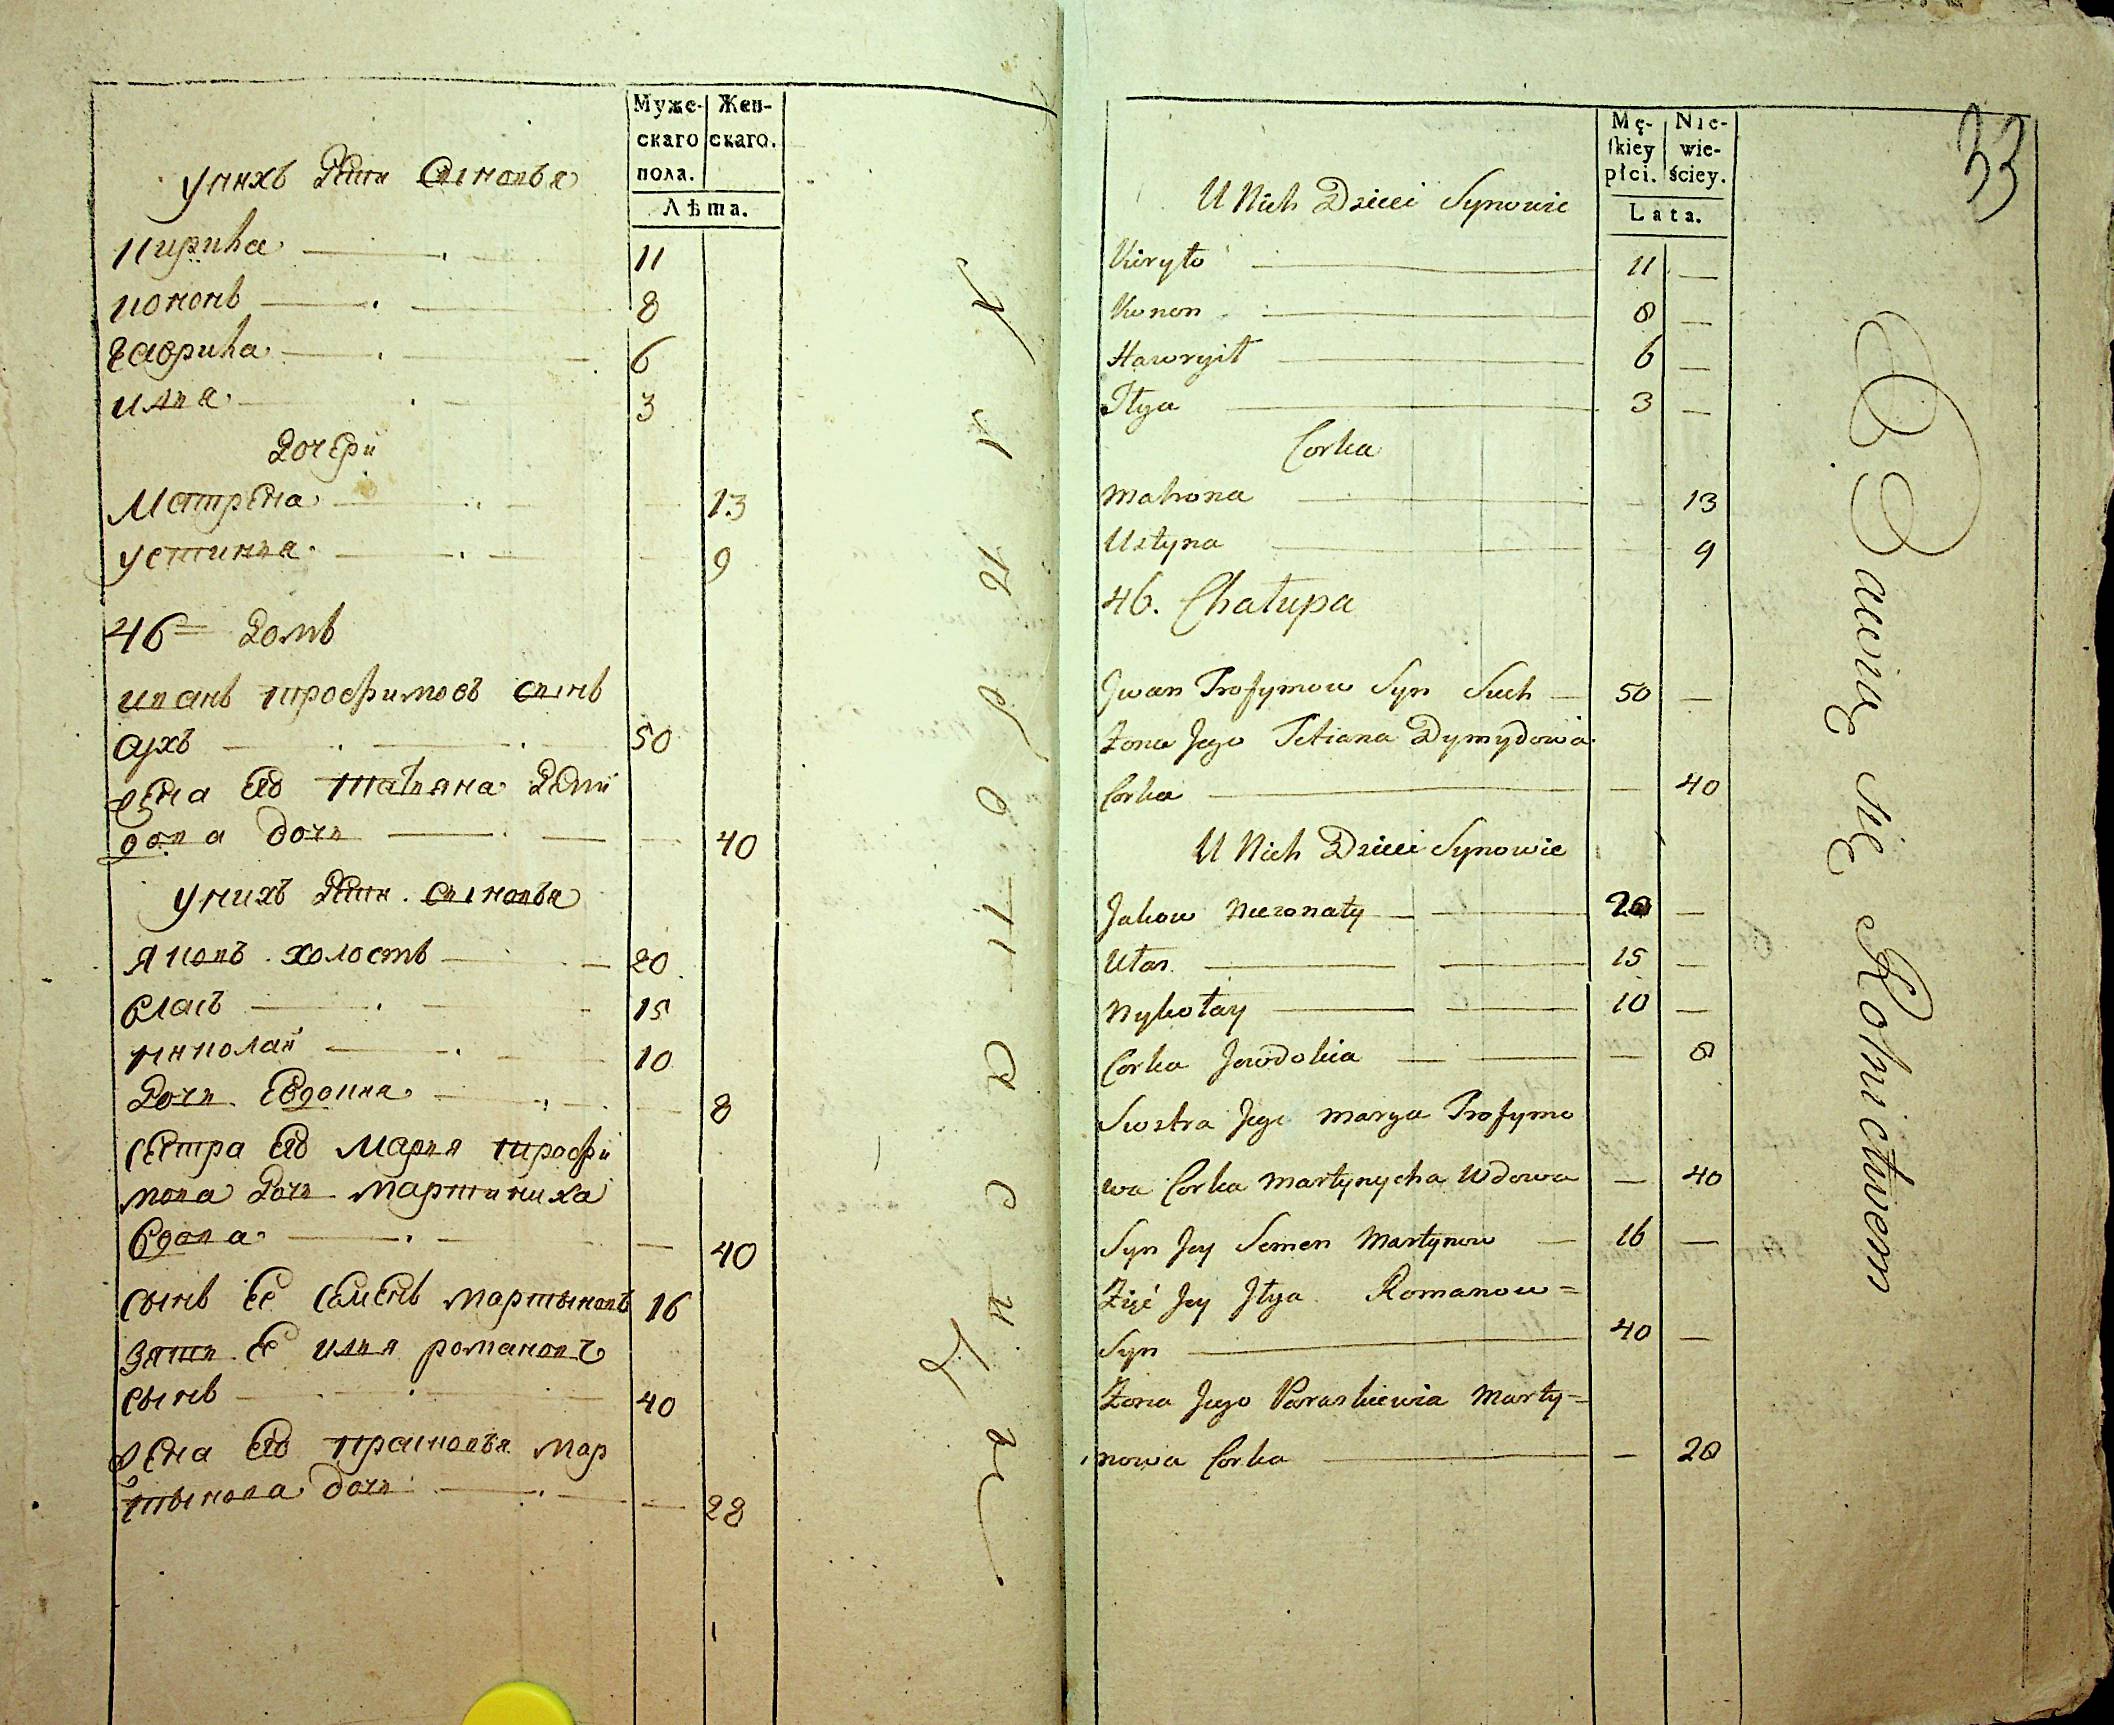 Муже-
скаго
пола.
Жен-
скаго.
Лѣта.
у нихъ дѣти сыновья
Кирила 11
Кононъ 8
Гаврила 6
Илья 3
Дочери
Матрена 13
Устинья 9
46 Домъ
Иванъ Трофимовъ сынъ
Сухъ 50
жена его Татьяна Деми
дова дочь 40
у нихъ дѣти сыновья
Яковъ холостъ 20
Власъ 15
Николай 10
Дочь Евдокия 8
сестра его Марья Трофи
мова дочь Мартиниха
вдова 40
сынъ ее Семенъ Мартыновъ 16
зять ее Илья Романовъ
сынъ 40
жена его Прасковья Мар
тынова дочь 28
33
Mę-
skiey
płci.
Nie-
wie-
ściey.
Lata.
U Nich Dzieci Synowie
Kiryło 11 —
Konon 8 —
Hawryił 6 —
Iłya 3 —
Corka
Matrona — 13
Ustyna — 9
46. Chałupa
Jwan Trofymow Syn Such — 50 —
Żona Jego Tetiana Dymydowa
Corka — 40
U Nich Dzieci Synowie
Jakow Nieżonaty 20 —
Ułas 15 —
Nykołay 10 —
Corka Jewdokia — 8
Siostra Jego Marya Trofymo
wa Corka Martynycha Wdowa — 40
Syn Jey Semen Martynow — 16 —
Zięć Jey Jłya Romanow=
Syn 40 —
Żona Jego Paraskiewia Marty=
nowa Corka — 28
Bawią się Rolnictwem